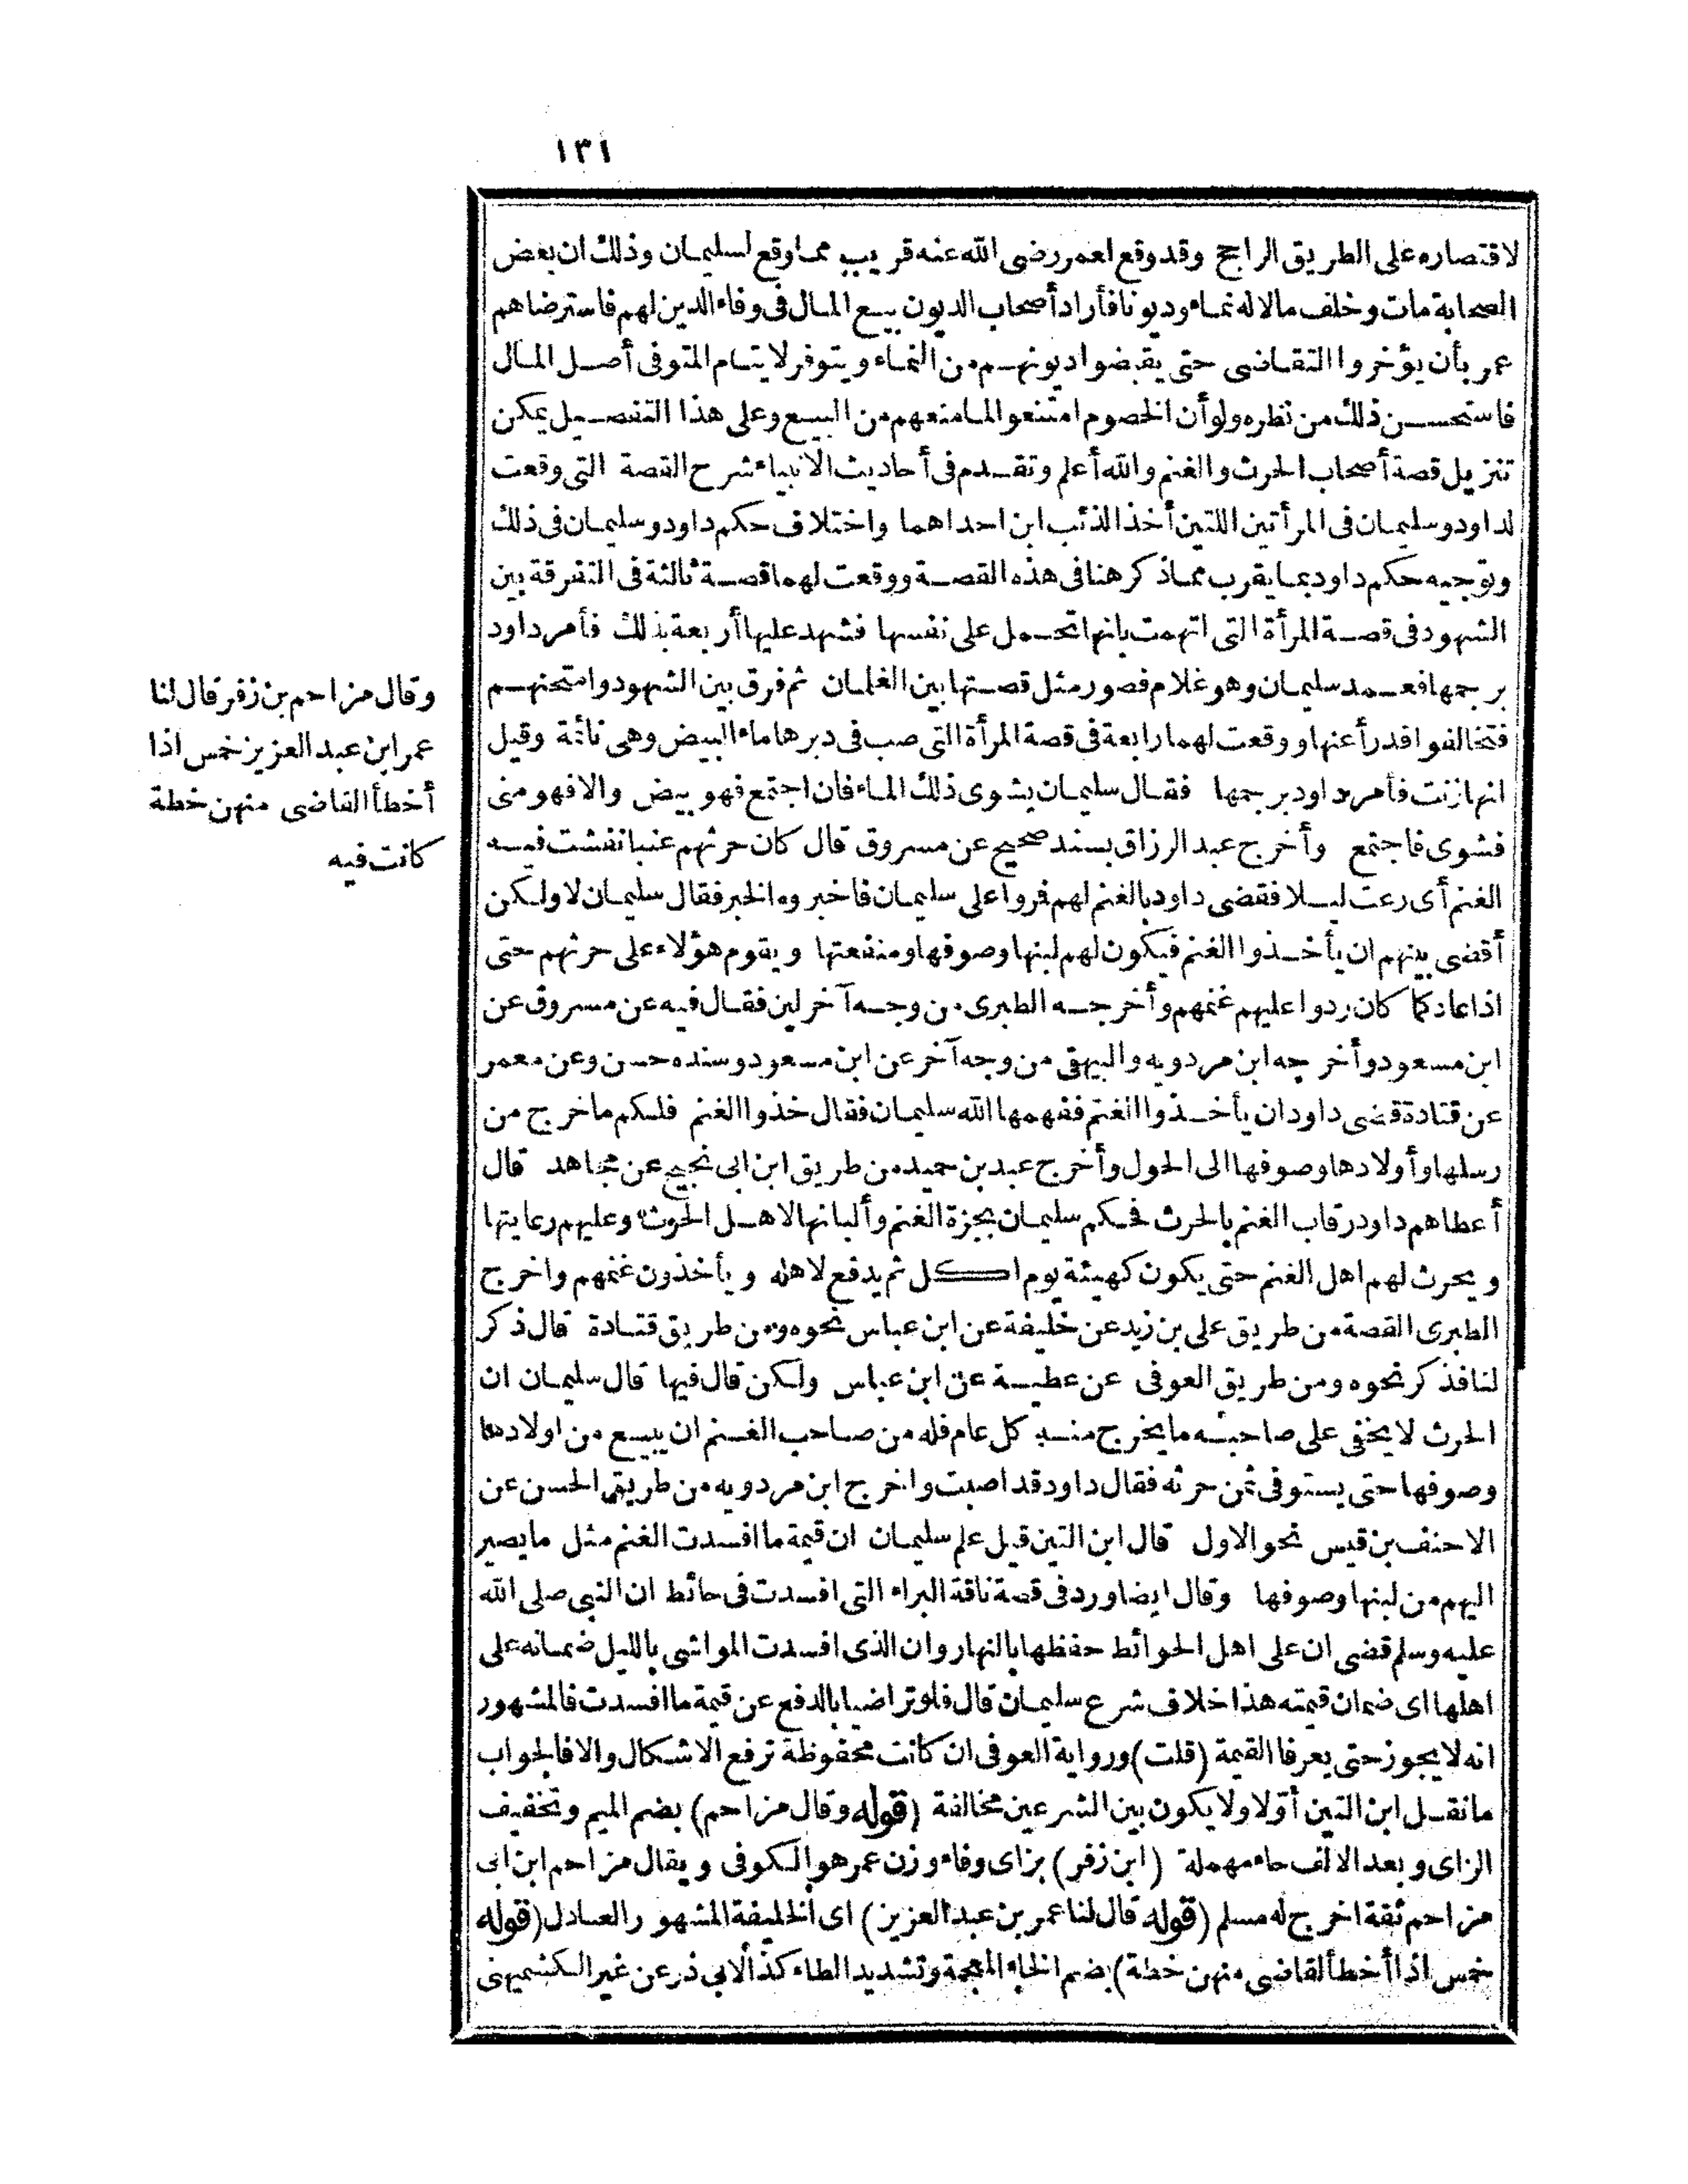 ١٣١
لاقتصاره على الطريق الراجح وقد وقع لعمر رضى الله عنه قريب مما وقع لسليمان وذلك ان بعض
الصحابة مات وخلف مالا له نماء وديونا فأراد أصحاب الديون بيع المال فى وفاء الدين لهم فاسترضاهم
عمر بأن يؤخروا التقاضى حتى يقبضوا ديونهم من النماء ويتوفر لايتام المتوفى أصل المال
فاستحسن ذلك من نظره ولو أن الخصوم امتنعوا لما منعهم من البيع وعلى هذا التفصيل يمكن
تنزيل قصة أصحاب الحرث والغنم والله أعلم وتقدم فى أحاديث الانبياء شرح القصة التى وقعت
لداود وسليمان فى المرأتين اللتين أخذ الذئب ابن احداهما واختلاف حكم داود وسليمان فى ذلك
وتوجيه حكم داود بما يقرب مما ذكر هنا فى هذه القصة ووقعت لهما قصة ثالثة فى التفرقة بين
الشهود فى قصة المرأة التى اتهمت بانها تحمل على نفسها فشهد عليها أربعة بذلك فأمر داود
برجمها فعمد سليمان وهو غلام فصور مثل قصتها بين الغلمان ثم فرق بين الشهود وامتحنهم
فتخالفوا فدرأ عنها ووقعت لهما رابعة فى قصة المرأة التى صب فى دبرها ماء البيض وهى نائمة وقيل
انها زنت فأمر داود برجمها فقال سليمان يشوى ذلك الماء فان اجتمع فهو بيض والا فهو منى
فشوى فاجتمع وأخرج عبد الرزاق بسند صحيح عن مسروق قال كان حرثهم عنبا نفشت فيه
الغنم أى رعت ليلا فقضى داود بالغنم لهم فروا على سليمان فاخبروه الخبر فقال سليمان لا ولكن
أقضى بينهم ان يأخذوا الغنم فيكون لهم لبنها وصوفها ومنفعتها ويقوم هؤلاء على حرثهم حتى
اذا عاد كما كان ردوا عليهم غنمهم وأخرجه الطبرى من وجه آخر لين فقال فيه عن مسروق عن
ابن مسعود وأخرجه ابن مردويه والبيهقى من وجه آخر عن ابن مسعود وسنده حسن وعن معمر
عن قتادة قضى داود ان يأخذوا الغنم ففهمها الله سليمان فقال خذوا الغنم فلكم ما خرج من
رسلها وأولادها وصوفها الى الحول وأخرج عبد بن حميد من طريق ابن ابى نجيح عن مجاهد قال
أعطاهم داود رقاب الغنم بالحرث فحكم سليمان بجزة الغنم وألبانها لاهل الحرث وعليهم رعايتها
ويحرث لهم اهل الغنم حتى يكون كهيئة يوم اكل ثم يدفع لاهله ويأخذون غنمهم واخرج
الطبرى القصة من طريق على بن زيد عن خليفة عن ابن عباس نحوه ومن طريق قتادة قال ذكر
لنا فذكر نحوه ومن طريق العوفى عن عطية عن ابن عباس ولكن قال فيها قال سليمان ان
الحرث لا يخفى على صاحبه ما يخرج منه كل عام فله من صاحب الغنم ان يبيع من اولادها
وصوفها حتى يستوفى ثمن حرثه فقال داود قد اصبت واخرج ابن مردويه من طريق الحسن عن
الاحنف بن قيس نحو الاول قال ابن التين قيل علم سليمان ان قيمة ما افسدت الغنم مثل ما يصير
اليهم من لبنها وصوفها وقال ايضا ورد فى قصة ناقة البراء التى افسدت فى حائط ان النبى صلى الله
عليه وسلم قضى ان على اهل الحوائط حفظها بالنهار وان الذى افسدت المواشى بالليل ضمانه على
اهلها اى ضمان قيمته هذا خلاف شرع سليمان قال فلو تراضيا بالدفع عن قيمة ما افسدت فالمشهور
انه لا يجوز حتى يعرفا القيمة (قلت) ورواية العوفى ان كانت محفوظة ترفع الاشكال والا فالجواب
ما نقل ابن التين أولا ولا يكون بين الشرعين مخالفة (قوله وقال مزاحم) بضم الميم وتخفيف
الزاى وبعد الالف حاء مهملة (ابن زفر) بزاى وفاء وزن عمر هو الكوفى ويقال مزاحم ابن ابى
مزاحم ثقة اخرج له مسلم (قوله قال لنا عمر بن عبد العزيز) اى الخليفة المشهور العادل (قوله
خمس اذا أخطأ القاضى منهن خطة) بضم الخاء المعجمة وتشديد الطاء كذا لابى ذر عن غير الكشميهنى
وقال مزاحم بن زفر قال لنا
عمر ابن عبد العزيز خمس اذا
أخطأ القاضى منهن خطة
كانت فيه